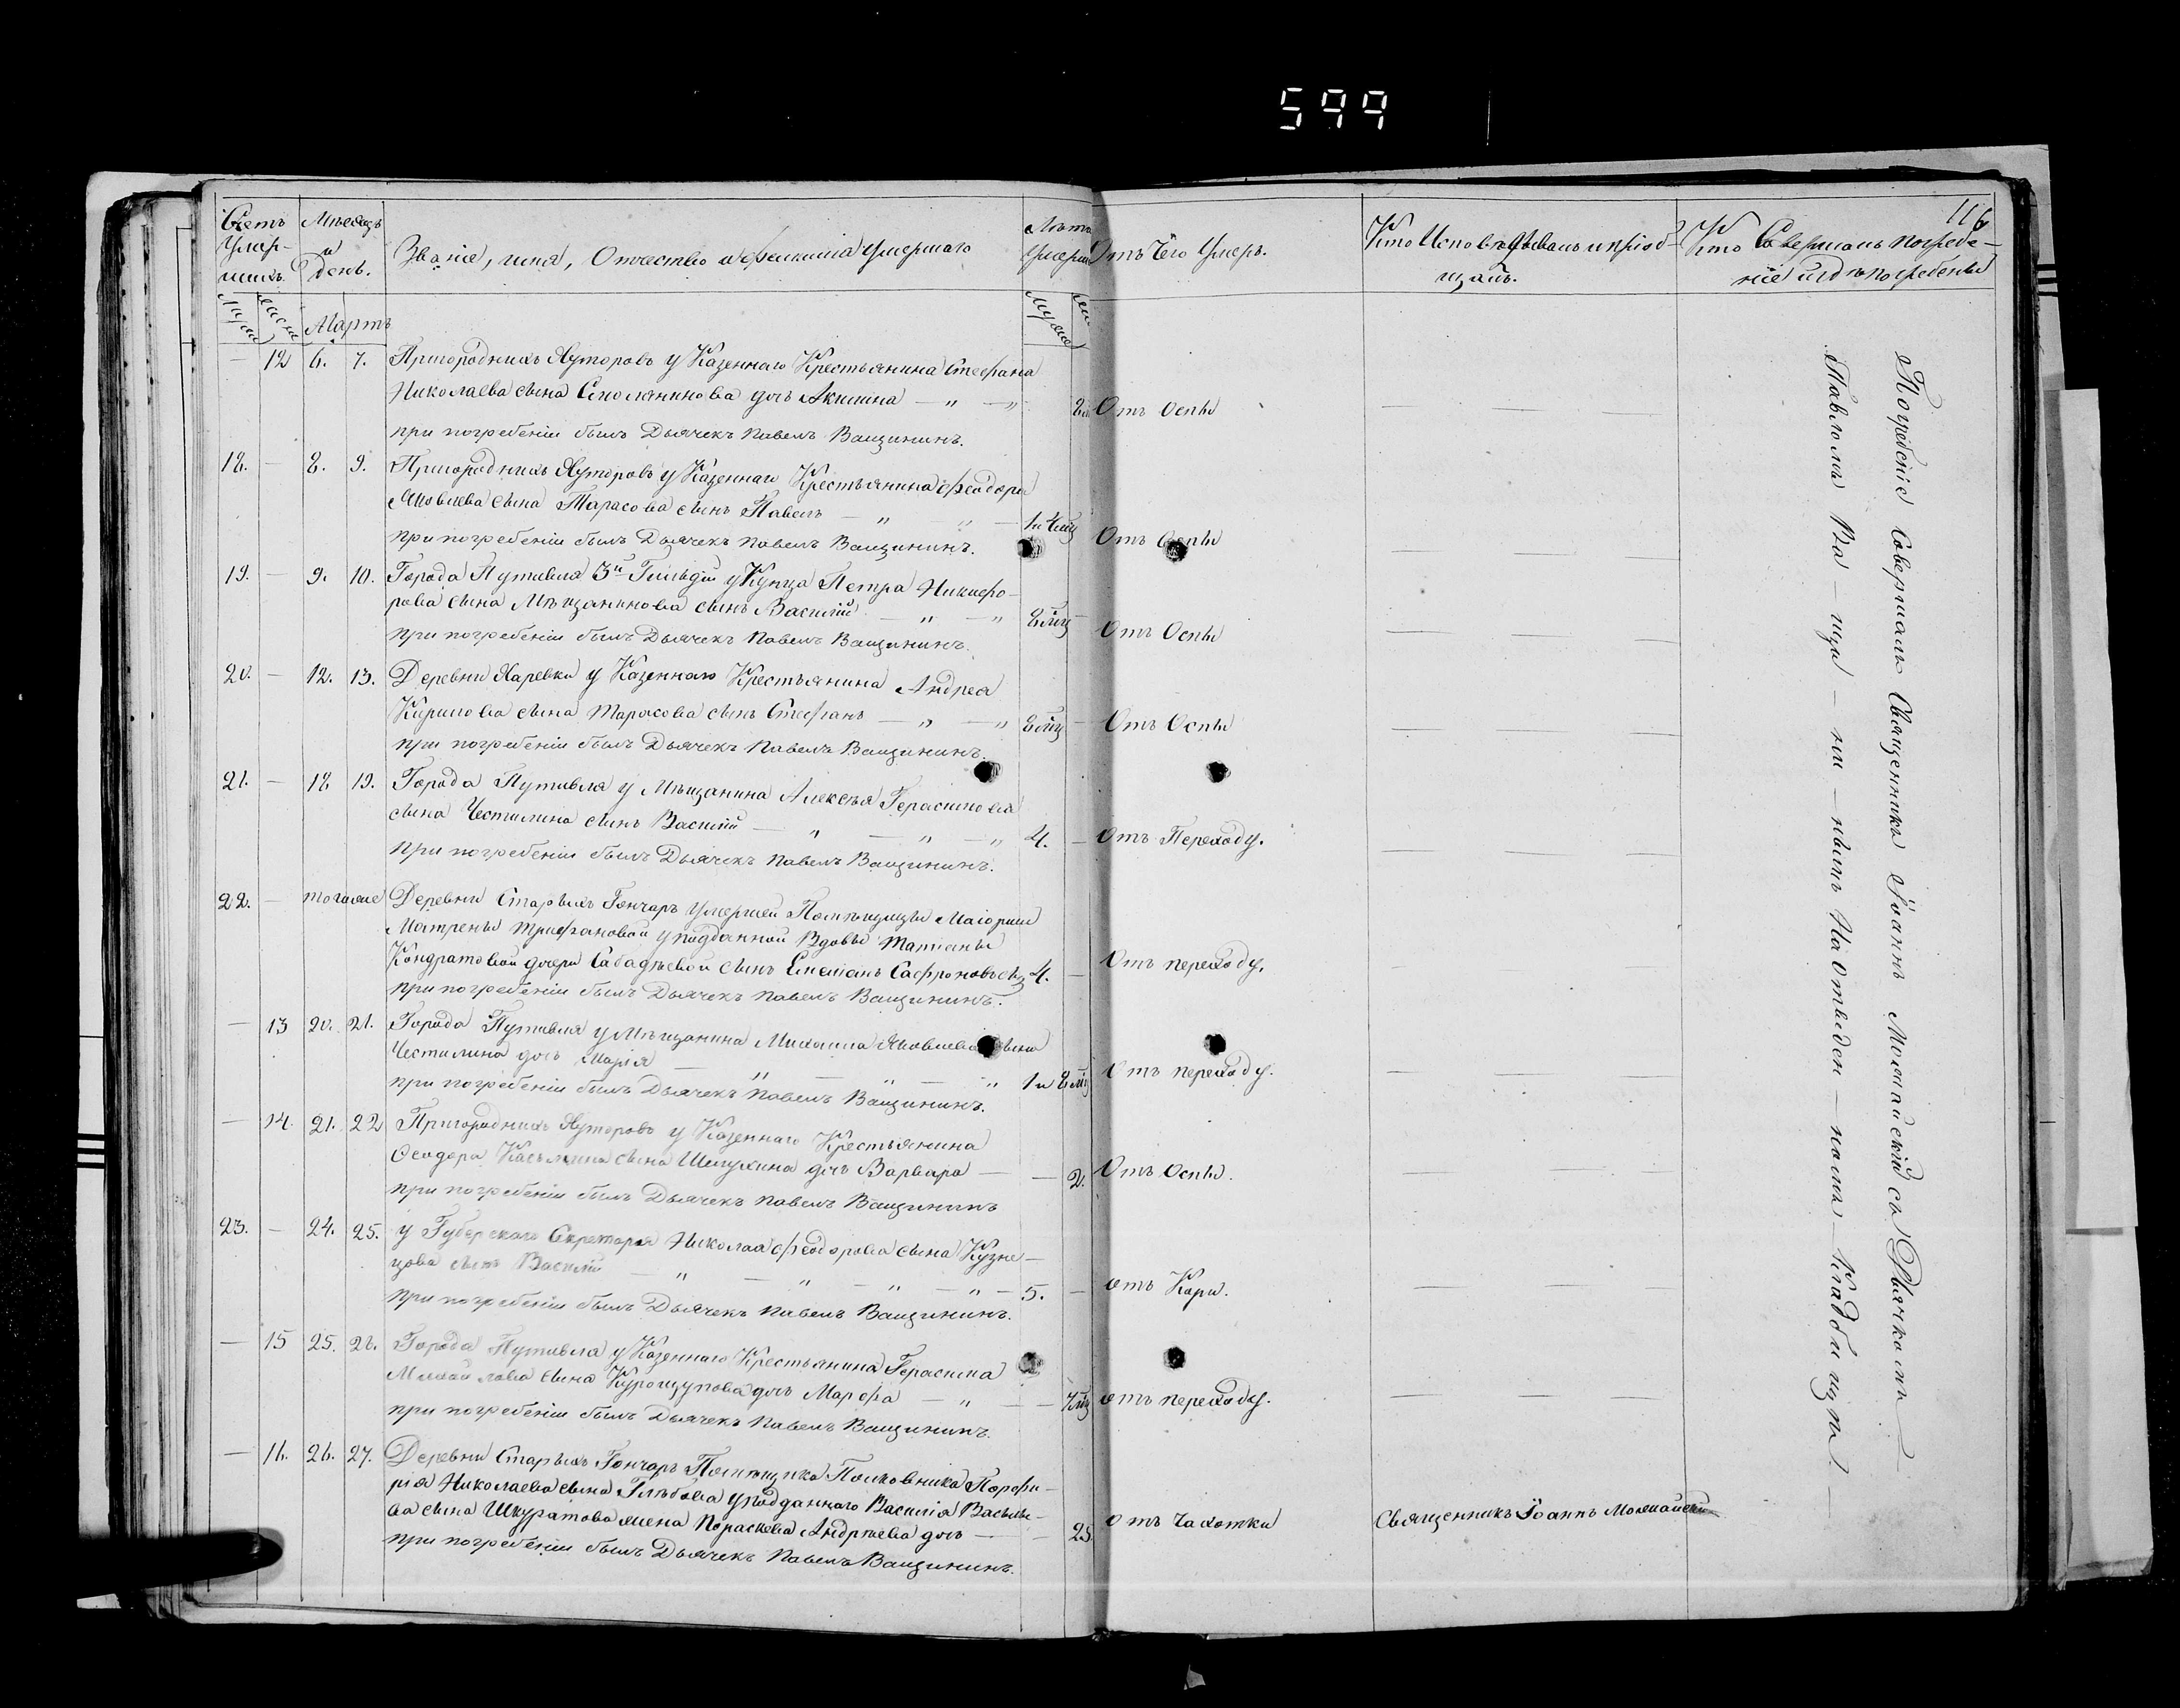 599
116
Счетъ умер-шихъ.
Мѣсяцъ и день.
Званіе, имя, Отчество и фамилія умершаго
Лѣта умерш
Отъ Чего умеръ.
Кто Исповѣдывалъ и пріоб-
щалъ.
Кто Совершалъ погребе-
ніе и гдѣ погребены
Мартъ
— 12 6. 7. Пригородныхъ Хуторовъ у Казеннаго Крестьянина Стефана
Николаева сына Смолянинова дочь Акилина — „ — „ Отъ Оспы
при погребеніи былъ Дьячекъ Павелъ Ващининъ.
18. — 8. 9. Пригородныхъ Хуторовъ у Казеннаго Крестьянина Феодора
Яковлева сына Тарасова сынъ Павелъ — „ „ — Отъ Оспы
при погребеніи былъ Дьячекъ Павелъ Ващининъ.
19. — 9. 10. Города Путивля 3й Гильдіи у Купца Петра Никифо-
рова сына Мѣщанинова сынъ Василій — „ — „ 8 мц Отъ Оспы
при погребеніи былъ Дьячекъ Павелъ Ващининъ.
20. — 12. 13. Деревни Харевки у Казеннаго Крестьянина Андрея
Кирилова сына Тарасова сынъ Стефанъ — „ — „ 8 мц — Отъ Оспы
при погребеніи былъ Дьячекъ Павелъ Ващининъ.
21. — 18 19. Города Путивля у Мѣщанина Алексѣя Герасимова
сына Честилина сынъ Василій — „ — „ — „ 4. — Отъ Переходу.
при погребеніи былъ Дьячекъ Павелъ Ващининъ.
22. — тогоже Деревни Старыхъ Гончаръ умершей Помѣщицы Маіорши
Матрены Трифановой у подданной Вдовы Татіаны
Кондратовой дочери Сабадѣевой сынъ Емеліанъ Сафроновъ 4. — Отъ переходу.
при погребеніи былъ Дьячекъ Павелъ Ващининъ.
— 13 20. 21. Города Путивля у Мѣщанина Михаила Яковлева сына
Честилина дочь Марія — „ — „ — „ 1 и 8 мц Отъ переходу.
при погребеніи былъ Дьячекъ Павелъ Ващининъ.
— 14. 21. 22 Пригородныхъ Хуторовъ у Казеннаго Крестьянина
Феодора Касьмина сына Шелухина дочь Варвара — — 2. Отъ Оспы.
при погребеніи былъ Дьячекъ Павелъ Ващининъ
23. — 24. 25. у Губерскаго Секретаря Николая Феодорова сына Кузне-
цова сынъ Василій — „ — „ — „ — „ — 5. — отъ Кори.
при погребеніи былъ Дьячекъ Павелъ Ващининъ.
— 15 25. 26. Города Путивля у Казеннаго Крестьянина Герасима
Михайлова сына Курощупова дочь Марфа — „ — — 7 мц отъ переходу.
при погребеніи былъ Дьячекъ Павелъ Ващининъ.
— 16. 26. 27. Деревни Старыхъ Гончаръ Помѣщика Полковника Порфи-
рія Николаева сына Глѣбова у подданнаго Василія Василь-
ева сына Шкуратова жена Параскева Андрѣева дочь — — 25. Отъ Чахотки Священникъ ІоаннъМожайскій
при погребеніи былъ Дьячекъ Павелъ Ващининъ.
Погребеніе Совершалъ Священникъ Іоаннъ Можайскій съ Дьячкомъ —
Павломъ Ва — щи — ни — нымъ На отведен — номъ — Кладбищи. —